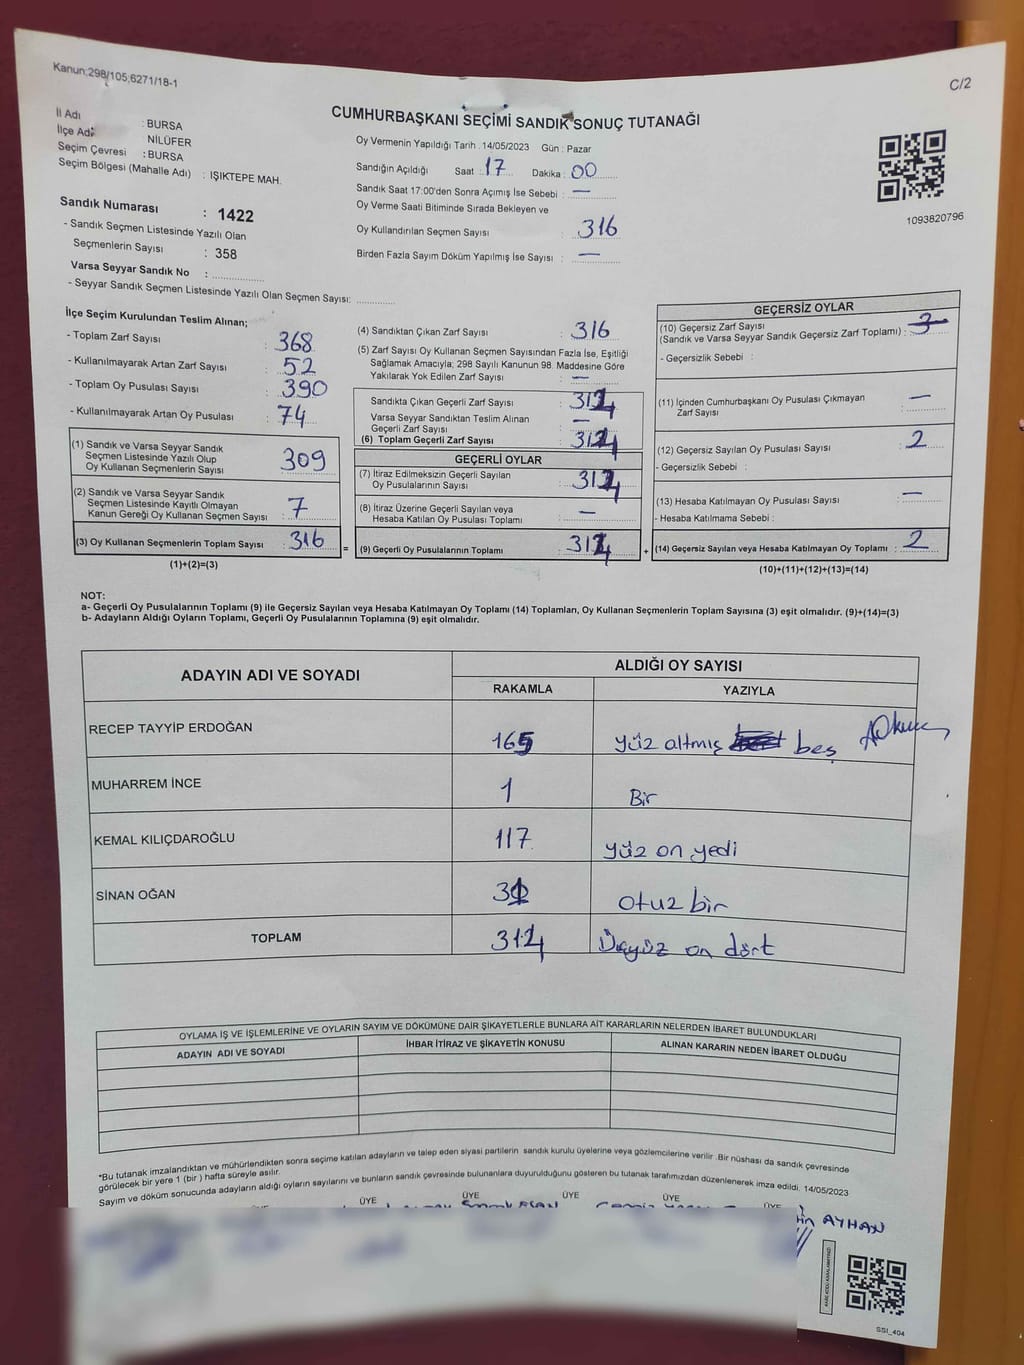 Kanun;298/105;6271/18-1
C/2
CUMHURBAŞKANI SEÇİMİ SANDIK SONUÇ TUTANAĞI
İl Adı : BURSA
İlçe Adı NİLÜFER
Seçim Çevresi : BURSA
Seçim Bölgesi (Mahalle Adı) : IŞIKTEPE MAH.
Sandık Numarası : 1422
- Sandık Seçmen Listesinde Yazılı Olan
Seçmenlerin Sayısı : 358
Varsa Seyyar Sandık No :
- Seyyar Sandık Seçmen Listesinde Yazılı Olan Seçmen Sayısı:
Oy Vermenin Yapıldığı Tarih . 14/05/2023 Gün : Pazar
Sandığın Açıldığı Saat : 17 Dakika : 00
Sandık Saat 17:00'den Sonra Açımış İse Sebebi : —
Oy Verme Saati Bitiminde Sırada Bekleyen ve
Oy Kullandırılan Seçmen Sayısı : 316
Birden Fazla Sayım Döküm Yapılmış İse Sayısı : —
1093820796
İlçe Seçim Kurulundan Teslim Alınan;
- Toplam Zarf Sayısı : 368
- Kullanılmayarak Artan Zarf Sayısı : 52
- Toplam Oy Pusulası Sayısı : 390
- Kullanılmayarak Artan Oy Pusulası : 74
(1) Sandık ve Varsa Seyyar Sandık
Seçmen Listesinde Yazılı Olup
Oy Kullanan Seçmenlerin Sayısı : 309
(2) Sandık ve Varsa Seyyar Sandık
Seçmen Listesinde Kayıtlı Olmayan
Kanun Gereği Oy Kullanan Seçmen Sayısı : 7
(3) Oy Kullanan Seçmenlerin Toplam Sayısı : 316
(1)+(2)=(3)
(4) Sandıktan Çıkan Zarf Sayısı : 316
(5) Zarf Sayısı Oy Kullanan Seçmen Sayısından Fazla İse, Eşitliği
Sağlamak Amacıyla; 298 Sayılı Kanunun 98. Maddesine Göre
Yakılarak Yok Edilen Zarf Sayısı : —
Sandıkta Çıkan Geçerli Zarf Sayısı : 314
Varsa Seyyar Sandıktan Teslim Alınan
Geçerli Zarf Sayısı : —
(6) Toplam Geçerli Zarf Sayısı : 314
GEÇERLİ OYLAR
(7) İtiraz Edilmeksizin Geçerli Sayılan
Oy Pusulalarının Sayısı : 314
(8) İtiraz Üzerine Geçerli Sayılan veya
Hesaba Katılan Oy Pusulası Toplamı : —
= (9) Geçerli Oy Pusulalarının Toplamı : 314
GEÇERSİZ OYLAR
(10) Geçersiz Zarf Sayısı
(Sandık ve Varsa Seyyar Sandık Geçersiz Zarf Toplamı) : 3
- Geçersizlik Sebebi :
(11) İçinden Cumhurbaşkanı Oy Pusulası Çıkmayan
Zarf Sayısı : —
(12) Geçersiz Sayılan Oy Pusulası Sayısı : 2
- Geçersizlik Sebebi :
(13) Hesaba Katılmayan Oy Pusulası Sayısı : —
- Hesaba Katılmama Sebebi :
+ (14) Geçersiz Sayılan veya Hesaba Katılmayan Oy Toplamı : 2
(10)+(11)+(12)+(13)=(14)
NOT:
a- Geçerli Oy Pusulalarının Toplamı (9) ile Geçersiz Sayılan veya Hesaba Katılmayan Oy Toplamı (14) Toplamları, Oy Kullanan Seçmenlerin Toplam Sayısına (3) eşit olmalıdır. (9)+(14)=(3)
b- Adayların Aldığı Oyların Toplamı, Geçerli Oy Pusulalarının Toplamına (9) eşit olmalıdır.
ADAYIN ADI VE SOYADI ALDIĞI OY SAYISI
RAKAMLA YAZIYLA
RECEP TAYYİP ERDOĞAN 165 Yüz altmış beş
MUHARREM İNCE 1 Bir
KEMAL KILIÇDAROĞLU 117 Yüz on yedi
SİNAN OĞAN 31 Otuz bir
TOPLAM 314 Üçyüz on dört
OYLAMA İŞ VE İŞLEMLERİNE VE OYLARIN SAYIM VE DÖKÜMÜNE DAİR ŞİKAYETLERLE BUNLARA AİT KARARLARIN NELERDEN İBARET BULUNDUKLARI
ADAYIN ADI VE SOYADI İHBAR İTİRAZ VE ŞİKAYETİN KONUSU ALINAN KARARIN NEDEN İBARET OLDUĞU
*Bu tutanak imzalandıktan ve mühürlendikten sonra seçime katılan adayların ve talep eden siyasi partilerin sandık kurulu üyelerine veya gözlemcilerine verilir .Bir nüshası da sandık çevresinde
görülecek bir yere 1 (bir ) hafta süreyle asılır.
Sayım ve döküm sonucunda adayların aldığı oyların sayılarını ve bunların sandık çevresinde bulunanlara duyurulduğunu gösteren bu tutanak tarafımızdan düzenlenerek imza edildi. 14/05/2023
ÜYE ÜYE ÜYE ÜYE ÜYE
AYHAN
SSI_404